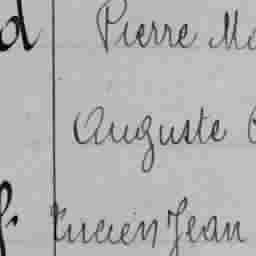 d Pierre Ma
Auguste
f. Lucien Jean